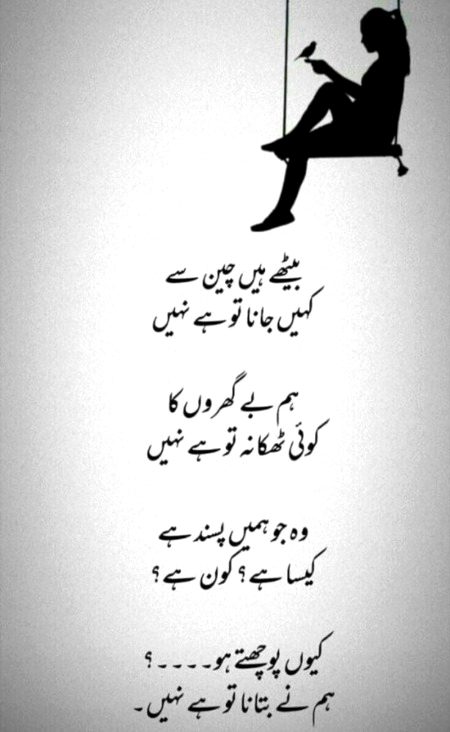 بیٹھے ہیں چین سے
کہیں جانا تو ہے نہیں
ہم بے گھروں کا
کوئی ٹھکانہ تو ہے نہیں
وہ جو ہمیں پسند ہے
کیسا ہے؟ کون ہے؟
کیوں پوچھتے ہو۔۔۔۔؟
ہم نے بتانا تو ہے نہیں۔